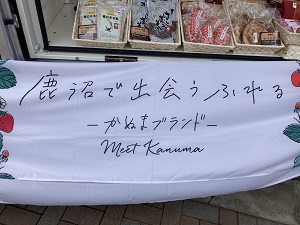 鹿沼で出会うふれる
－かぬまブランド－
Meet Kanuma